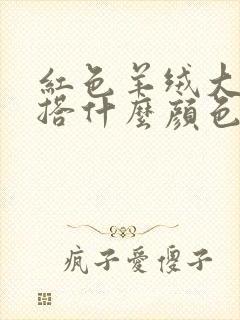 红色羊绒大
搭什麼顏色
疯子愛傻子